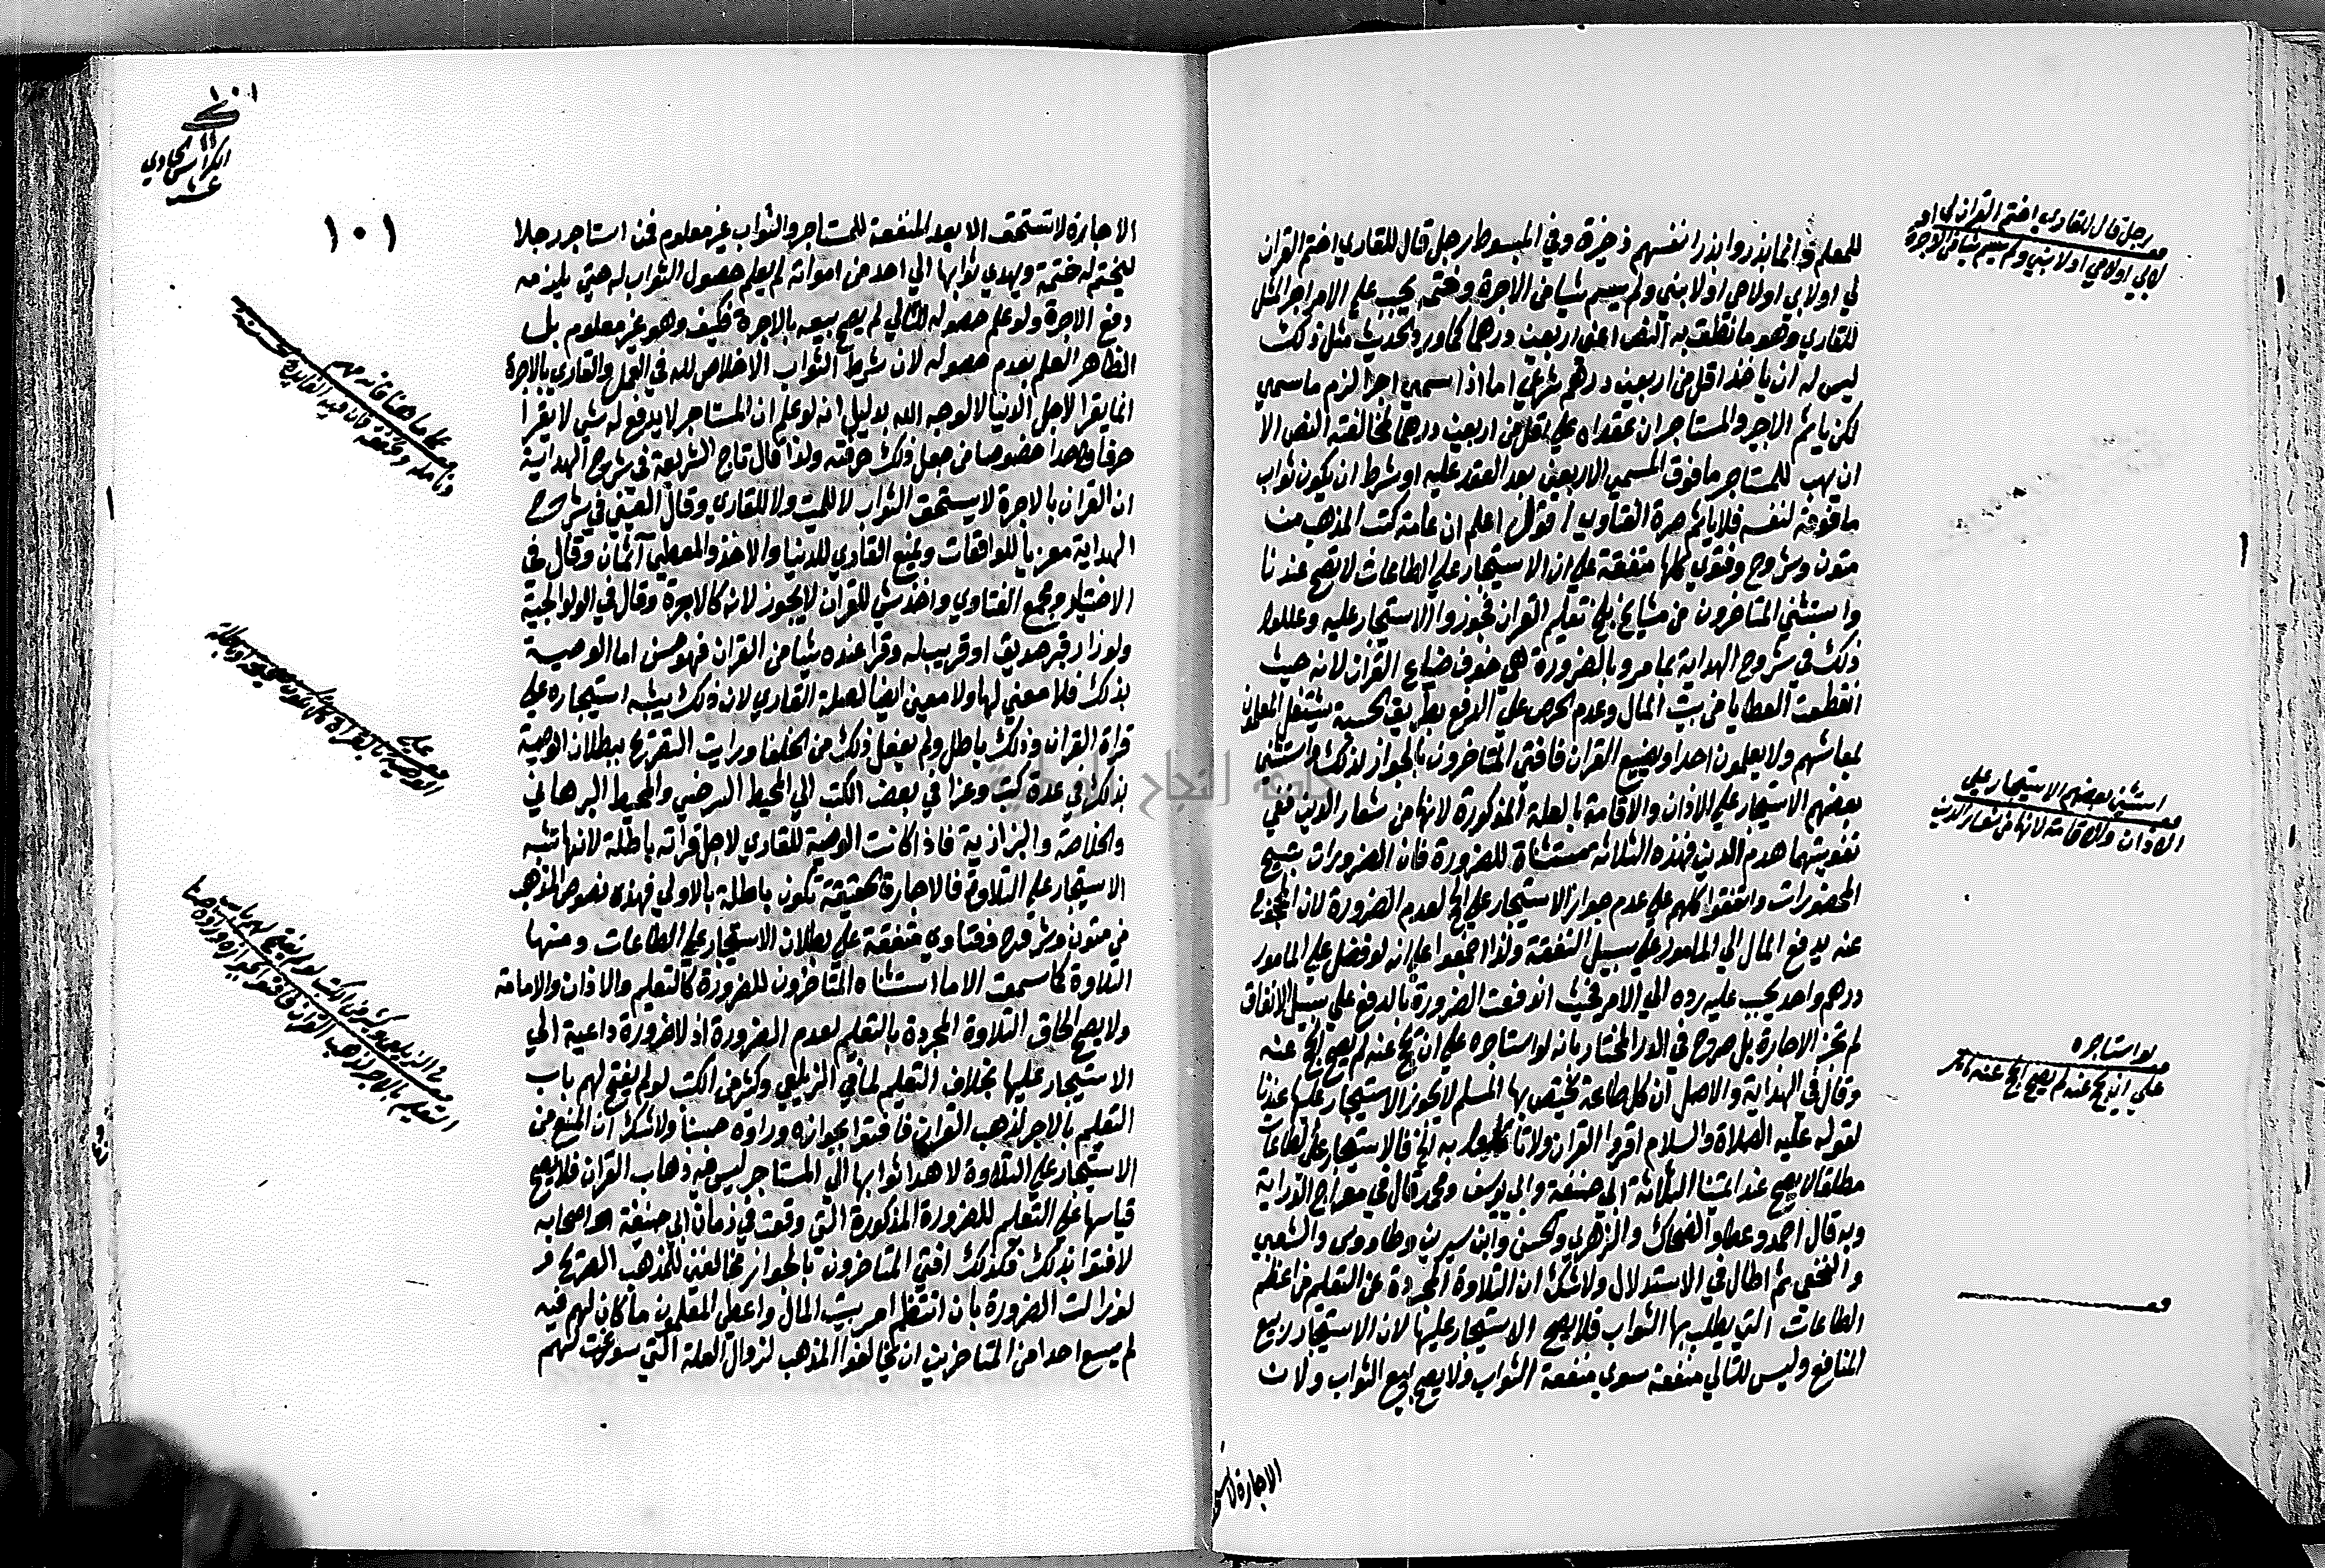 للمعلم وانما نذروا نذر انفسهم ذخيرة وفي المبسوط رجل قال للقاري اختم القران
لي او لابي او لامي او لابني ولم يسم شيا من الاجرة وختمه يجب على الامر اجر المثل
للقاري وهو ما نطق به النص اعني اربعين درهما كما ورد بحديث مثل ذلك
ليس له ان ياخذ اقل من اربعين درهم شرعي اما اذا سمى اجرا لزم ما سمي
لكن ياثم الاجير والمستاجر ان عقداه على اقل من اربعين درهما لمخالفته النص الا
ان يهب للمستاجر ما فوق المسمى الاربعين بعد العقد عليه او شرط ان يكون ثواب
ما فوقه لنفسه فلا ياثم صرة الفتاوي اقول اعلم ان عامة كتب المذهب من
متون وشروح وفتوي كلها متفقة على ان الاستيجار على الطاعات لا تصح عندنا
واستثني المتاخرون من مشايخ بلخ تعليم القران فجوزوا الاستيجار عليه وعللوا
ذلك في شروح الهداية بما مر وبالضرورة هي خوف ضياع القران لانه حيث
انقطعت العطايا من بيت المال وعدم الحرص على الدفع بطريق الحسبة يشتغل المعلمون
لمعاشهم ولا يعلمون احدا ويضيع القران فافتي المتاخرون بالجواز لذلك واستثني
بعضهم الاستيجار على الاذان والاقامة بالعلة المذكورة لانها من شعار الدين ففي
تفويتهما هدم الدين فهذه الثلاثه مستثناة للضرورة فان الضرورات تبيح
المحضورات واتفقوا كلهم على عدم جواز الاستيجار على الحج لعدم الضرورة لان المحجوج
عنه يدفع المال الى المامور على سبيل النفقة ولذا اجمعوا على انه لو فضل على المامور
درهم واحد يجب عليه رده الي الامر فحيث اندفعت الضرورة بالدفع علي سبيل الانفاق
لم تجز الاجارة بل صرح في الدر المختار بانه لو استاجره على ان يحج عنه لم يصح الحج عنه
وقال في الهداية والاصل ان كل طاعة يختص بها المسلم لا يجوز الاستيجار عليها عندنا
لقوله عليه الصلاة والسلام اقروا القران ولا تاكلوا به الخ فالاستيجار على الطاعات
مطلقا لا يصح عند ائمتنا الثلاثة ابي حنيفة وابي يوسف ومحمد قال في معراج الدراية
وبه قال احمد وعطا والضحاك والزهري والحسن وابن سيرين وطاووس والشعبي
والنخعي ثم اطال في الاستدلال ولا شك ان التلاوة المجردة عن التعليم من اعظم
الطاعات التي يطلب بها الثواب فلا يصح الاستيجار عليها لان الاستيجار بيع
المنافع وليس للتالي منفعة سوي منفعة الثواب ولا يصح بيع الثواب ولان
الاجارة لا تستحق
رجل قال للقاري اختم القران لي او
لابي او لامي او لابني ولم يسم شيا من الاجرة
استثني بعضهم الاستيجار على
الاذان والاقامة لانها من شعار الدين
لو استاجره
علي ان يحج عنه لم يصح الحج عنه
١٠١
الكراس الحادي
عشر
١٠١
الاجارة لا تستحق الا بعد المنفعة للمستاجر والثواب غير معلوم فمن استاجر رجلا
ليختم له ختمة ويهدي ثوابها الي احد من امواته لم يعلم حصول الثواب له حتي يلزمه
دفع الاجرة ولو علم حصوله للتالي لم يصح بيعه بالاجرة فكيف وهو غير معلوم بل
الظاهر العلم بعدم حصوله لان شرط الثواب الاخلاص لله في العمل والقاري بالاجرة
انما يقرا لاجل الدنيا لا لوجه الله بدليل انه لو علم ان المستاجر لا يدفع له شي لا يقرا
حرفا واحدا خصوصا من جعل ذلك حرفته ولذا قال تاج الشريعة في شرح الهداية
ان القران بالاجرة لا يستحق الثواب لا للميت ولا للقاري وقال العيني في شرح
الهداية معزيا للواقعات ويمنع القاري للدنيا والاخذ والمعطي آثمان وقال في
الاختيار ومجمع الفتاوي واخذ شي للقران لا يجوز لانه كالاجرة وقال في الولوالجية
ولو زار قبر صديق او قريب له وقرا عنده شيا من القران فهو حسن اما الوصية
بذلك فلا معني لها ولا معني ايضا لصلة القاري لان ذلك يشبه استيجاره علي
قراة القران وذلك باطل ولم يفعل ذلك من الخلفا ورايت التصريح ببطلان الوصية
بذلك في عدة كتب وعزا في بعض الكتب الي المحيط السرخسي والمحيط البرهاني
والخلاصة والبزازية فاذا كانت الوصية للقاري لاجل قراته باطلة لانها تشبه
الاستيجار على التلاوة فالاجارة الحقيقة تكون باطلة بالاولي فهذه نصوص المذهب
من متون وشروح وفتاوى متفقة علي بطلان الاستيجار على الطاعات ومنها
التلاوة كما سمعت الا ما استثناه المتاخرون للضرورة كالتعليم والاذان والامامة
ولا يصح الحاق التلاوة المجردة بالتعليم لعدم الضرورة اذ لا ضرورة داعية الي
الاستيجار عليها بخلاف التعليم لما في الزيلعي وكثير من الكتب لو لم يفتح لهم باب
التعليم بالاجر لذهب القران فافتوا بجوازه وراوه حسنا ولا شك ان المنع من
الاستيجار على التلاوة لاهدا ثوابها الي المستاجر ليس فيه ذهاب القران فلا يصح
قياسها على التعليم للضرورة المذكورة التي وقعت في زمان ابي حنيفة واصحابه
لافتوا بذلك فكذلك افتي المتاخرون بالجواز مخالفين للمذهب الصريح و
لو زالت الضرورة بان انتظم امر بيت المال واعطي المعلمين ما كان لهم فيه
لم يسع احدا من المتاخرين ان يخالفوا المذهب لزوال العلة التي سوغت لهم
الوصية بالقراة
في الزيلعي وكثير من الكتب لو لم يفتح لهم باب
التعليم بالاجر لذهب القران فافتوا بجوازه وراوه حسنا